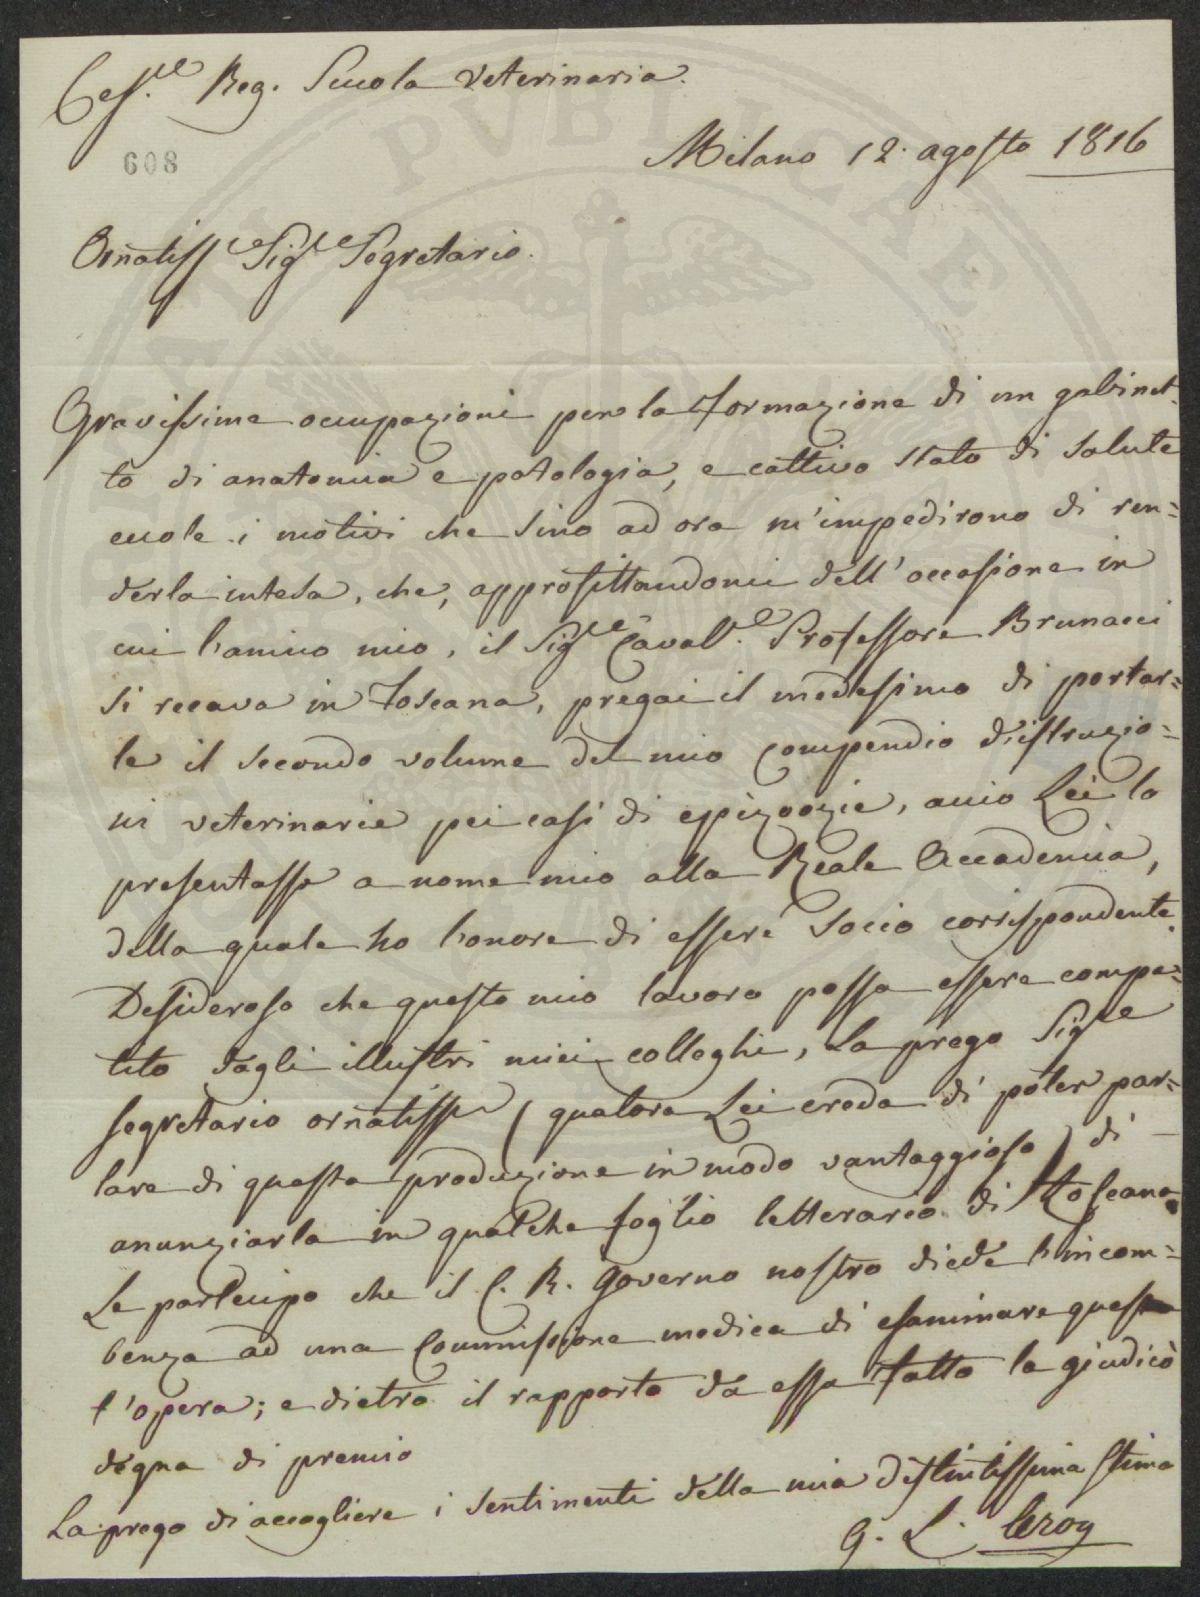 Ces.e Reg. Scuola Veterinaria.
608
Milano 12. agosto 1816
Ornatiss.e Sig.e Segretario.
Gravissime occupazioni per la formazione di un gabinet-
to di anatomia e patologia, e cattivo stato di salute
eccole i motivi che sino ad ora m'impedirono di ren=
derla intesa, che, approfittandomi dell'occasione in
cui l'amico mio, il Sig.e Caval.e Professore Brunacci
si recava in Toscana, pregai il medesimo di portar=
le il secondo volume del mio compendio d'istruzio=
ni veterinarie pei casi di epizoozie, accio Lei lo
presentasse a nome mio alla Reale Accademia,
della quale ho l'onore di essere socio corrispondente.
Desideroso che questo mio lavoro possa essere compa=
tito dagli illustri miei colleghi, La prego Sig.e
segretario ornatiss.e (qualora Lei creda di poter par=
lare di questa produzione in modo vantaggioso) di
anunziarla in qualche foglio letterario di Toscana.
Le partecipo che il C. R. Governo nostro diede l'incom=
benza ad una Commissione medica di esaminare ques
t'opera; e dietro il rapporto da essa fatto la giudicò
degna di premio
La prego di accogliere i sentimenti della mia distintissima stima
G. L. Leroy
PVBLICAE